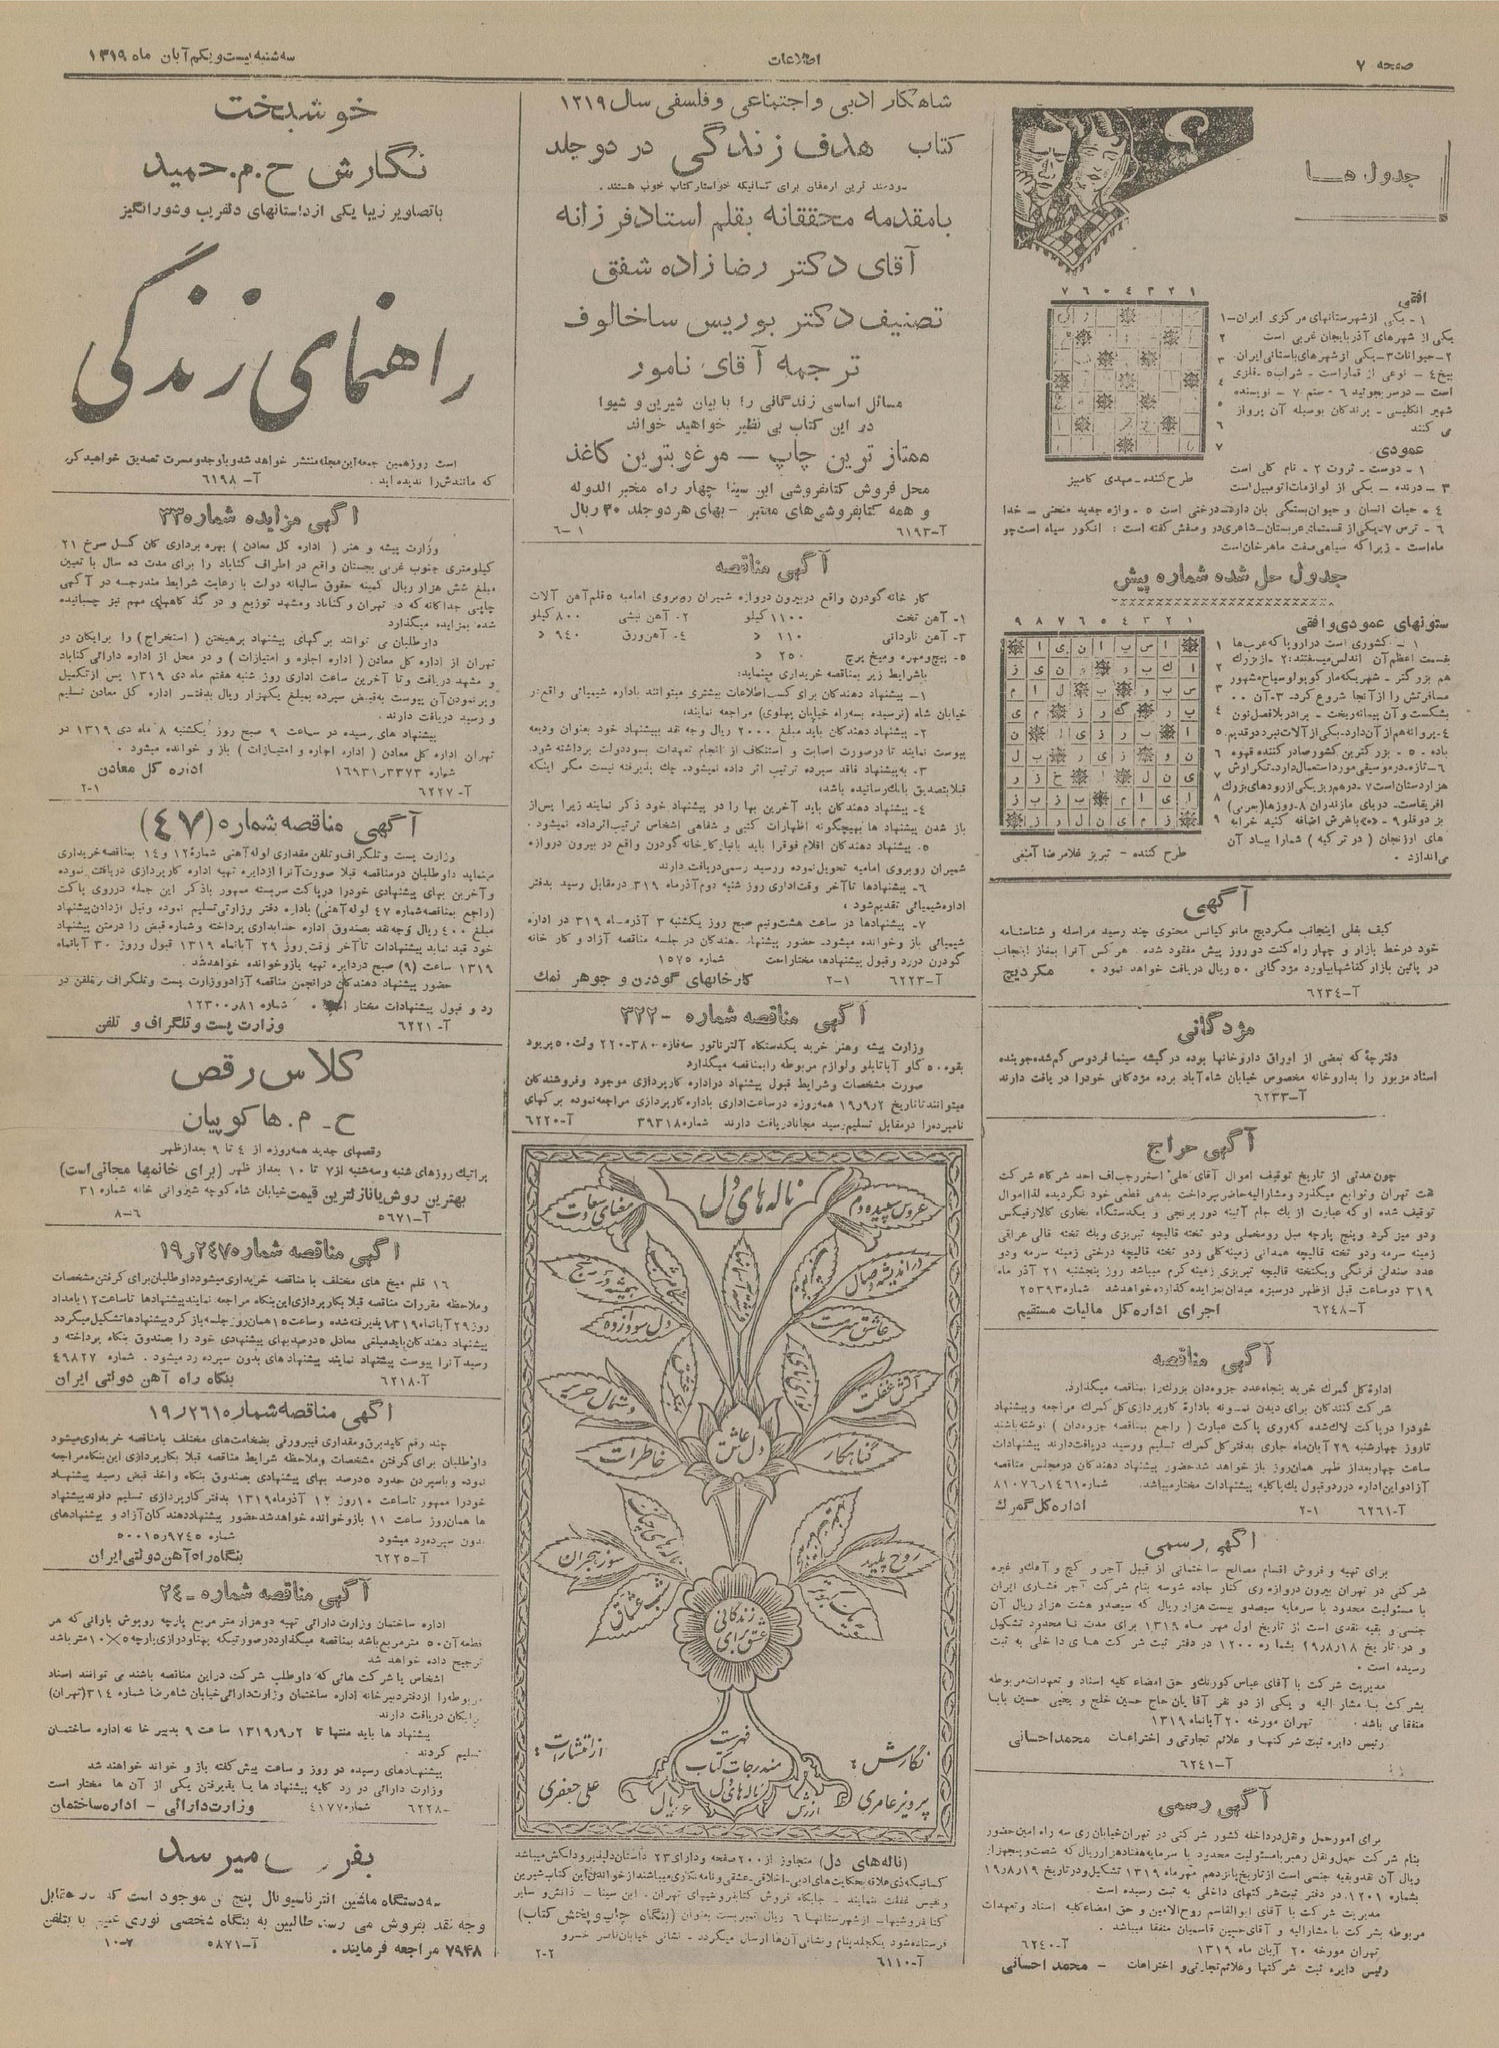 صفحه ۷
اطلاعات
سه شنبه بیست و یکم آبان ماه ۱۳۱۹
جدول ها
افقی
۱ - یکی از شهرستانهای مرکزی ایران -
یکی از شهرهای آذربایجان غربی است
۲ - حیوانات ۳ - یکی از شهرهای باستانی ایران
بیخ ۴ - نوعی از قمار است - شراب ۵ - فلزی
است - دوسر بجوئید ۶ - ستم ۷ - نویسنده
شهیر انگلیسی - پرندگان بوسیله آن پرواز
می کنند
عمودی
۱ - دوست - ثروت ۲ - نام گلی است
۳ - درنده - یکی از لوازمات اتومبیل است
طرح کننده - مهدی کامبیز
۴ - حیات انسان و حیوان بستگی بان دارد - درختی است ۵ - واژه جدید منحنی - خدا
۶ - ترس ۷ - یکی از قسمتهای عربستان - شاعری در وصفش گفته است : انگور سیاه است چو
ماه است - زیرا که سیاهی صفت ماهر خان است
جدول حل شده شماره پیش
ستونهای عمودی و افقی
۱ - کشوری است در اروپا که عرب ها
بقسمت اعظم آن اندلس میگفتند : ۲ - از بزرگ
هم بزرگتر - شهریکه مارکوپولو سیاح مشهور
مسافرتش را از آنجا شروع کرد - ۳ - آن
بشکست و آن پیمانه ریخت - برادر بلافصل نون
۴ - پروانه هم از آن دارد - یکی از آلات نبرد قدیم
باده - ۵ - بزرگترین کشور صادر کننده قهوه
۶ - تازه - در موسیقی مورد استعمال دارد - نگارش
هزاردستان است ۷ - درهم ریز یکی از رودهای بزرگ
افریقاست - دریای مازندران ۸ - روزها (عربی)
بز دوقلو ۹ - «ه» باخرش اضافه کنید خرابه
های ارزنجان ( در ترکیه ) شما را بیاد آن
می اندازد .
طرح کننده - تبریز غلامرضا آمیغی
آگهی
کیف بغلی اینجانب مکردیچ مانوکیانس محتوی چند رسید مراسله و شناسنامه
خود در خط بازار و چهار راه کنت دو روز پیش مفقود شده . هر کس آنرا بمغازه اینجانب
در پائین بازار کفاشها بیاورد مژدگانی ۵۰ ریال دریافت خواهد نمود . مکردیچ
آ-۶۲۳۴
مژدگانی
دفترچه که بعضی از اوراق داروخانها بوده در گیشه سینما فردوسی گم شده جوینده
اسناد مزبور را بداروخانه مخصوص خیابان شاه آباد برده مژدگانی خود را دریافت دارند
آ-۶۲۳۳
آگهی حراج
چون مدتی از تاریخ توقیف اموال آقای علی اصغر رجباف احد شرکاء شرکت
نفت تهران و توابع میگذرد و مشارالیه حاضر بپرداخت بدهی قطعی خود نگردیده لذا اموال
توقیف شده او که عبارت از یک جام آئینه دور برنجی و یکدستگاه بخاری کالارفیکس
و دو میز گرد و پنج پارچه مبل رومخملی و دو تخته قالیچه تبریزی و یک تخته قالی عراقی
زمینه سرمه و دو تخته قالیچه همدانی زمینه گلی و دو تخته قالیچه درختی زمینه سرمه و دو
عدد صندلی فرنگی و یکتخته قالیچه تبریزی زمینه کرم میباشد روز پنجشنبه ۲۱ آذر ماه
۳۱۹ دو ساعت قبل از ظهر در سبزه میدان بمزایده گذارده خواهد شد شماره ۲۵۳۹۳
آ-۶۲۴۸ اجرای اداره کل مالیات مستقیم
آگهی مناقصه
اداره کل گمرک خرید پنجاه عدد جزوه دان بزرگ را بمناقصه میگذارد.
شرکت کنندگان برای دیدن نمونه باداره کارپردازی کل گمرک مراجعه و پیشنهاد
خود را در پاکت لاک شده که روی پاکت عبارت ( راجع بمناقصه جزوه دان ) نوشته باشند
تا روز چهارشنبه ۲۹ آبان ماه جاری بدفتر کل گمرک تسلیم و رسید دریافت دارند پیشنهادات
ساعت چهار بعد از ظهر همان روز باز خواهد شد حضور پیشنهاد دهندگان در مجلس مناقصه
آزاد و این اداره در رد و قبول یک یا کلیه پیشنهادات مختار میباشد. شماره ۸۱۰۷۶/۱۴۶۱
آ-۶۲۶۱ ۲-۱ اداره کل گمرک
آگهی رسمی
برای تهیه و فروش اقسام مصالح ساختمانی از قبیل آجر و گچ و آهک و غیره
شرکتی در تهران بیرون دروازه ری کنار جاده شوسه بنام شرکت آجر فشاری ایران
با مسئولیت محدود با سرمایه سیصد و بیست هزار ریال که سیصد و هشت هزار ریال آن
جنسی و بقیه نقدی است از تاریخ اول مهر ماه ۱۳۱۹ برای مدت نا محدود تشکیل
و در تاریخ ۱۹٫۸٫۱۸ بشماره ۱۲۰۰ در دفتر ثبت شرکت های داخلی به ثبت
رسیده است .
مدیریت شرکت با آقای عباس کورنگ و حق امضاء کلیه اسناد و تعهدات مربوطه
بشرکت با مشار الیه و یکی از دو نفر آقایان حاج حسین خلج و یحیی حسین بابا
متفقا می باشد . تهران مورخه ۲۰ آبانماه ۱۳۱۹
رئیس دایره ثبت شرکتها و علائم تجارتی و اختراعات محمد احسانی
آ-۶۲۴۱
آگهی رسمی
برای امور حمل و نقل در داخله کشور شرکتی در تهران خیابان ری سه راه امین حضور
بنام شرکت حمل و نقل رهبر با مسئولیت محدود با سرمایه هفتاد هزار ریال که شصت و پنجهزار
ریال آن نقد و بقیه جنسی است از تاریخ پانزدهم مهر ماه ۱۳۱۹ تشکیل و در تاریخ ۱۹/۸/۱۹
بشماره ۱۲۰۱ در دفتر ثبت شرکتهای داخلی به ثبت رسیده است .
مدیریت شرکت با آقای ابوالقاسم روح الامین و حق امضاء کلیه اسناد و تعهدات
مربوطه بشرکت با مشارالیه و آقای حسین قاسمیان متفقا میباشد .
تهران مورخه ۲۰ آبان ماه ۱۳۱۹ آ-۶۲۴۰
رئیس دایره ثبت شرکتها و علائم تجارتی و اختراعات - محمد احسانی
شاهکار ادبی و اجتماعی و فلسفی سال ۱۳۱۹
کتاب هدف زندگی در دو جلد
سودمند ترین ارمغان برای کسانیکه خواستار کتاب خوب هستند .
با مقدمه محققانه بقلم استاد فرزانه
آقای دکتر رضا زاده شفق
تصنیف دکتر بوریس ساخالوف
ترجمه آقای نامور
مسائل اساسی زندگانی را با بیان شیرین و شیوا
در این کتاب بی نظیر خواهید خواند
ممتاز ترین چاپ - مرغوبترین کاغذ
محل فروش کتابفروشی ابن سینا چهار راه مخبر الدوله
و همه کتابفروشی های معتبر - بهای هر دو جلد ۳۰ ریال
آ-۶۱۹۳ ۶-۱
آگهی مناقصه
کارخانه گودرن واقع در بیرون دروازه شمیران روبروی امامیه ۵ قلم آهن آلات
۱- آهن تخت ۱۱۰۰ کیلو ۲- آهن نبشی ۸۰۰ کیلو
۳- آهن ناودانی ۱۱۰ » ۴- آهن ورق ۹۴۰ »
۵- پیچ و مهره و میخ پرچ ۲۵۰ »
باشرایط زیر بمناقصه خریداری مینماید:
۱- پیشنهاد دهندگان برای کسب اطلاعات بیشتری میتوانند باداره شیمیائی واقع در
خیابان شاه (نرسیده بسه راه خیابان پهلوی) مراجعه نمایند:
۲- پیشنهاد دهندگان باید مبلغ ۲۰۰۰ ریال وجه نقد بپیشنهاد خود بعنوان ودیعه
پیوست نمایند تا در صورت اصابت و استنکاف از انجام تعهدات بسود دولت برداشته شود.
۳- به پیشنهاد فاقد سپرده ترتیب اثر داده نمیشود. چک پذیرفته نیست مگر اینکه
قبلا بتصدیق بانک رسانیده باشد:
۴- پیشنهاد دهندگان باید آخرین بها را در پیشنهاد خود ذکر نمایند زیرا پس از
باز شدن پیشنهاد ها بهیچگونه اظهارات کتبی و شفاهی اشخاص ترتیب اثر داده نمیشود.
۵- پیشنهاد دهندگان اقلام فوق را باید بانبار کارخانه گودرن واقع در بیرون دروازه
شمیران روبروی امامیه تحویل نموده و رسید رسمی دریافت دارند
۶- پیشنهادها تا آخر وقت اداری روز شنبه دوم آذر ماه ۳۱۹ در مقابل رسید بدفتر
اداره شیمیائی تقدیم شود:
۷- پیشنهادها در ساعت هشت و نیم صبح روز یکشنبه ۳ آذر ماه ۳۱۹ در اداره
شیمیائی باز و خوانده میشود. حضور پیشنهاد دهندگان در جلسه مناقصه آزاد و کارخانه
گودرن در رد و قبول پیشنهادها مختار است شماره ۱۵۷۵
آ-۶۲۲۳ ۲-۱ کارخانهای گودرن و جوهر نمک
آگهی مناقصه شماره -۳۲۲
وزارت پیشه و هنر خرید یکدستگاه آلترناتور سه فازه ۳۸۰-۲۲۰ ولت ۵۰ پریود
بقوه ۵۰ کاو آ با تابلو و لوازم مربوطه را بمناقصه میگذارد
صورت مشخصات و شرایط قبول پیشنهاد در اداره کارپردازی موجود و فروشندگان
میتوانند تا تاریخ ۱۹/۹/۲ همه روزه در ساعت اداری باداره کارپردازی مراجعه نموده برگهای
نامبرده را در مقابل تسلیم رسید مجانا دریافت دارند شماره ۳۹۳۱۸ آ-۶۲۲۰
ناله های دل
عروس سپیده دم
مغنای سعادت
در اندیشه وصال
همیشه در رنج
عاشق سرمست
دل سودازده
آتش غفلت
و شمال حریر
دل عاشق
گناهکار
خاطرات
ناله های چنگ
روح پلید
سوز هجران
شب عشاق
زندگانی برای عشق
فهرست
مندرجات کتاب
ناله های دل
ارزش ۶ ریال
نگارش :
پرویز عامری
از انتشارات :
علی جعفری
(ناله های دل) متجاوز از ۲۰۰ صفحه و دارای ۲۳ داستان دلپذیر و دلکش میباشد
کسانیکه ذی علاقه بحکایت های ادبی - اخلاقی - عشقی و نامه نگاری میباشند از خواندن این کتاب شیرین
و نفیس غفلت ننمایند . جایگاه فروش کتابفروشیهای تهران . ابن سینا - دانش و سایر
کتابفروشیها - از شهرستانها ۶ ریال تمبر پست بعنوان (بنگاه چاپ و پخش کتاب)
فرستاده شود یکجلد بنام و نشانی آن ها ارسال میگردد - نشانی خیابان ناصر خسرو
آ-۶۱۱۰ ۲-۲
خوشبخت
نگارش ح.م.حمید
با تصاویر زیبا یکی از داستانهای دلفریب و شورانگیز
راهنمای زندگی
است روز همین جمعه این مجله منتشر خواهد شد و با وجد و مسرت تصدیق خواهید کرد
که مانندش را ندیده اید . آ- ۶۱۹۸
آگهی مزایده شماره ۳۳
وزارت پیشه و هنر ( اداره کل معادن ) بهره برداری کان گل سرخ ۲۱
کیلومتری جنوب غربی بجستان واقع در اطراف گناباد را برای مدت ده سال با تعیین
مبلغ شش هزار ریال کمینه حقوق سالیانه دولت با رعایت شرایط مندرجه در آگهی
چاپی جداگانه که در تهران و گناباد و مشهد توزیع و در گذرگاههای مهم نیز چسبانیده
شده بمزایده میگذارد
داوطلبان می توانند برگهای پیشنهاد برهیختن ( استخراج ) را برایگان در
تهران از اداره کل معادن ( اداره اجاره و امتیازات ) و در محل از اداره دارائی گناباد
و مشهد دریافت و تا آخرین ساعت اداری روز شنبه هفتم ماه دی ۱۳۱۹ پس از تکمیل
و پر نمودن آن پیوست بقبض سپرده بمبلغ یکهزار ریال بدفتر اداره کل معادن تسلیم
و رسید دریافت دارند .
پیشنهاد های رسیده در ساعت ۹ صبح روز یکشنبه ۸ ماه دی ۱۳۱۹ در
تهران اداره کل معادن ( اداره اجاره و امتیازات ) باز و خوانده میشود .
شماره ۱۶۹۳۱/۳۳۷۳ اداره کل معادن
آ- ۶۲۲۷ ۲-۱
آگهی مناقصه بشماره (۴۷)
وزارت پست و تلگراف و تلفن مقداری لوله آهنی شماره ۱۲ و ۱۴ بمناقصه خریداری
مینماید داوطلبان در مناقصه قبلا صورت آنرا از دایره تهیه اداره کارپردازی دریافت نموده
و آخرین بهای پیشنهادی خود را در پاکت سربسته ممهور با ذکر این جمله در روی پاکت
(راجع بمناقصه شماره ۴۷ لوله آهنی) باداره دفتر وزارتی تسلیم نموده و قبل از دادن پیشنهاد
مبلغ ۴۰۰ ریال وجه نقد بصندوق اداره حسابداری پرداخته و شماره قبض را در متن پیشنهاد
خود قید نماید پیشنهادات تا آخر وقت روز ۲۹ آبانماه ۱۳۱۹ قبول و روز ۳۰ آبانماه
۱۳۱۹ ساعت (۹) صبح در دایره تهیه باز و خوانده خواهد شد .
حضور پیشنهاد دهندگان در انجمن مناقصه آزاد و وزارت پست و تلگراف و تلفن در
رد و قبول پیشنهادات مختار است . شماره ۱۲۳۰۰/۸۱
آ- ۶۲۲۱ وزارت پست و تلگراف و تلفن
کلاس رقص
ح - م . هاکوپیان
رقصهای جدید همه روزه از ۴ تا ۹ بعد از ظهر
پراتیک روزهای شنبه و سه شنبه از ۷ تا ۱۰ بعد از ظهر (برای خانمها مجانی است)
بهترین روش با نازلترین قیمت خیابان شاه کوچه شیروانی خانه شماره ۳۱
آ-۵۶۷۱ ۸-۶
آگهی مناقصه شماره ۱۹٫۲۴۷۰
۱۶ قلم میخ های مختلف با مناقصه خریداری میشود داوطلبان برای گرفتن مشخصات
و ملاحظه مقررات مناقصه قبلا بکارپردازی این بنگاه مراجعه نمایند پیشنهادها تا ساعت ۱۲ بامداد
روز ۲۹ آبانماه ۱۳۱۹ پذیرفته شده و ساعت ۱۵ همان روز جلسه باز کردن پیشنهادها تشکیل میگردد
پیشنهاد دهندگان باید مبلغی معادل ۵ درصد بهای پیشنهادی خود را بصندوق بنگاه پرداخته و
رسید آنرا پیوست پیشنهاد نمایند پیشنهاد های بدون سپرده رد میشود . شماره ۴۹۸۲۷
آ-۶۲۱۸ بنگاه راه آهن دولتی ایران
آگهی مناقصه شماره ۱۹٫۲۶۱۵
چند رقم کلید برق و مقداری فیبر ورقی بضخامت های مختلف بامناقصه خریداری میشود
داوطلبان برای گرفتن مشخصات و ملاحظه شرایط مناقصه قبلا بکارپردازی این بنگاه مراجعه
نموده و با سپردن حدود ۵ درصد بهای پیشنهادی بصندوق بنگاه و اخذ قبض رسید پیشنهاد
خود را ممهور تا ساعت ۱۰ روز ۱۲ آذر ماه ۱۳۱۹ بدفتر کارپردازی تسلیم دارند پیشنهاد
ها همان روز ساعت ۱۱ باز و خوانده خواهد شد حضور پیشنهاد دهندگان آزاد و پیشنهادهای
بدون سپرده رد میشود شماره ۵۰۰۱۵/۹۷۴۵
آ-۶۲۲۵ بنگاه راه آهن دولتی ایران
آگهی مناقصه شماره -۲۴
اداره ساختمان وزارت دارائی تهیه دو هزار متر مربع پارچه روپوش بارانی که هر
قطعه آن ۵۰ متر مربع باشد بمناقصه میگذارد در صورتیکه پهنا و درازی پارچه ۵×۱۰ متر باشد
ترجیح داده خواهد شد
اشخاص یا شرکت هائی که داوطلب شرکت در این مناقصه باشند می توانند اسناد
مربوطه را از دفتر دبیرخانه اداره ساختمان وزارت دارائی خیابان شاهرضا شماره ۳۱۴ (تهران)
رایگان دریافت دارند
پیشنهاد ها باید منتها تا ۱۳۱۹٫۹٫۲ ساعت ۹ بدبیر خانه اداره ساختمان
تسلیم گردند .
پیشنهادهای رسیده در روز و ساعت پیش گفته باز و خواند خواهند شد
وزارت دارائی در رد کلیه پیشنهاد ها یا پذیرفتن یکی از آن ها مختار است
-۶۲۲۸ شماره ۴۱۷۷۰ وزارت دارائی - اداره ساختمان
بفروش میرسد
سه دستگاه ماشین انترناسیونال پنج تن موجود است که در مقابل
وجه نقد بفروش می رسد طالبین به بنگاه شخصی نوری عظیم با تلفن
۷۹۴۸ مراجعه فرمایند . آ-۵۸۷۱ ۱۰-۷